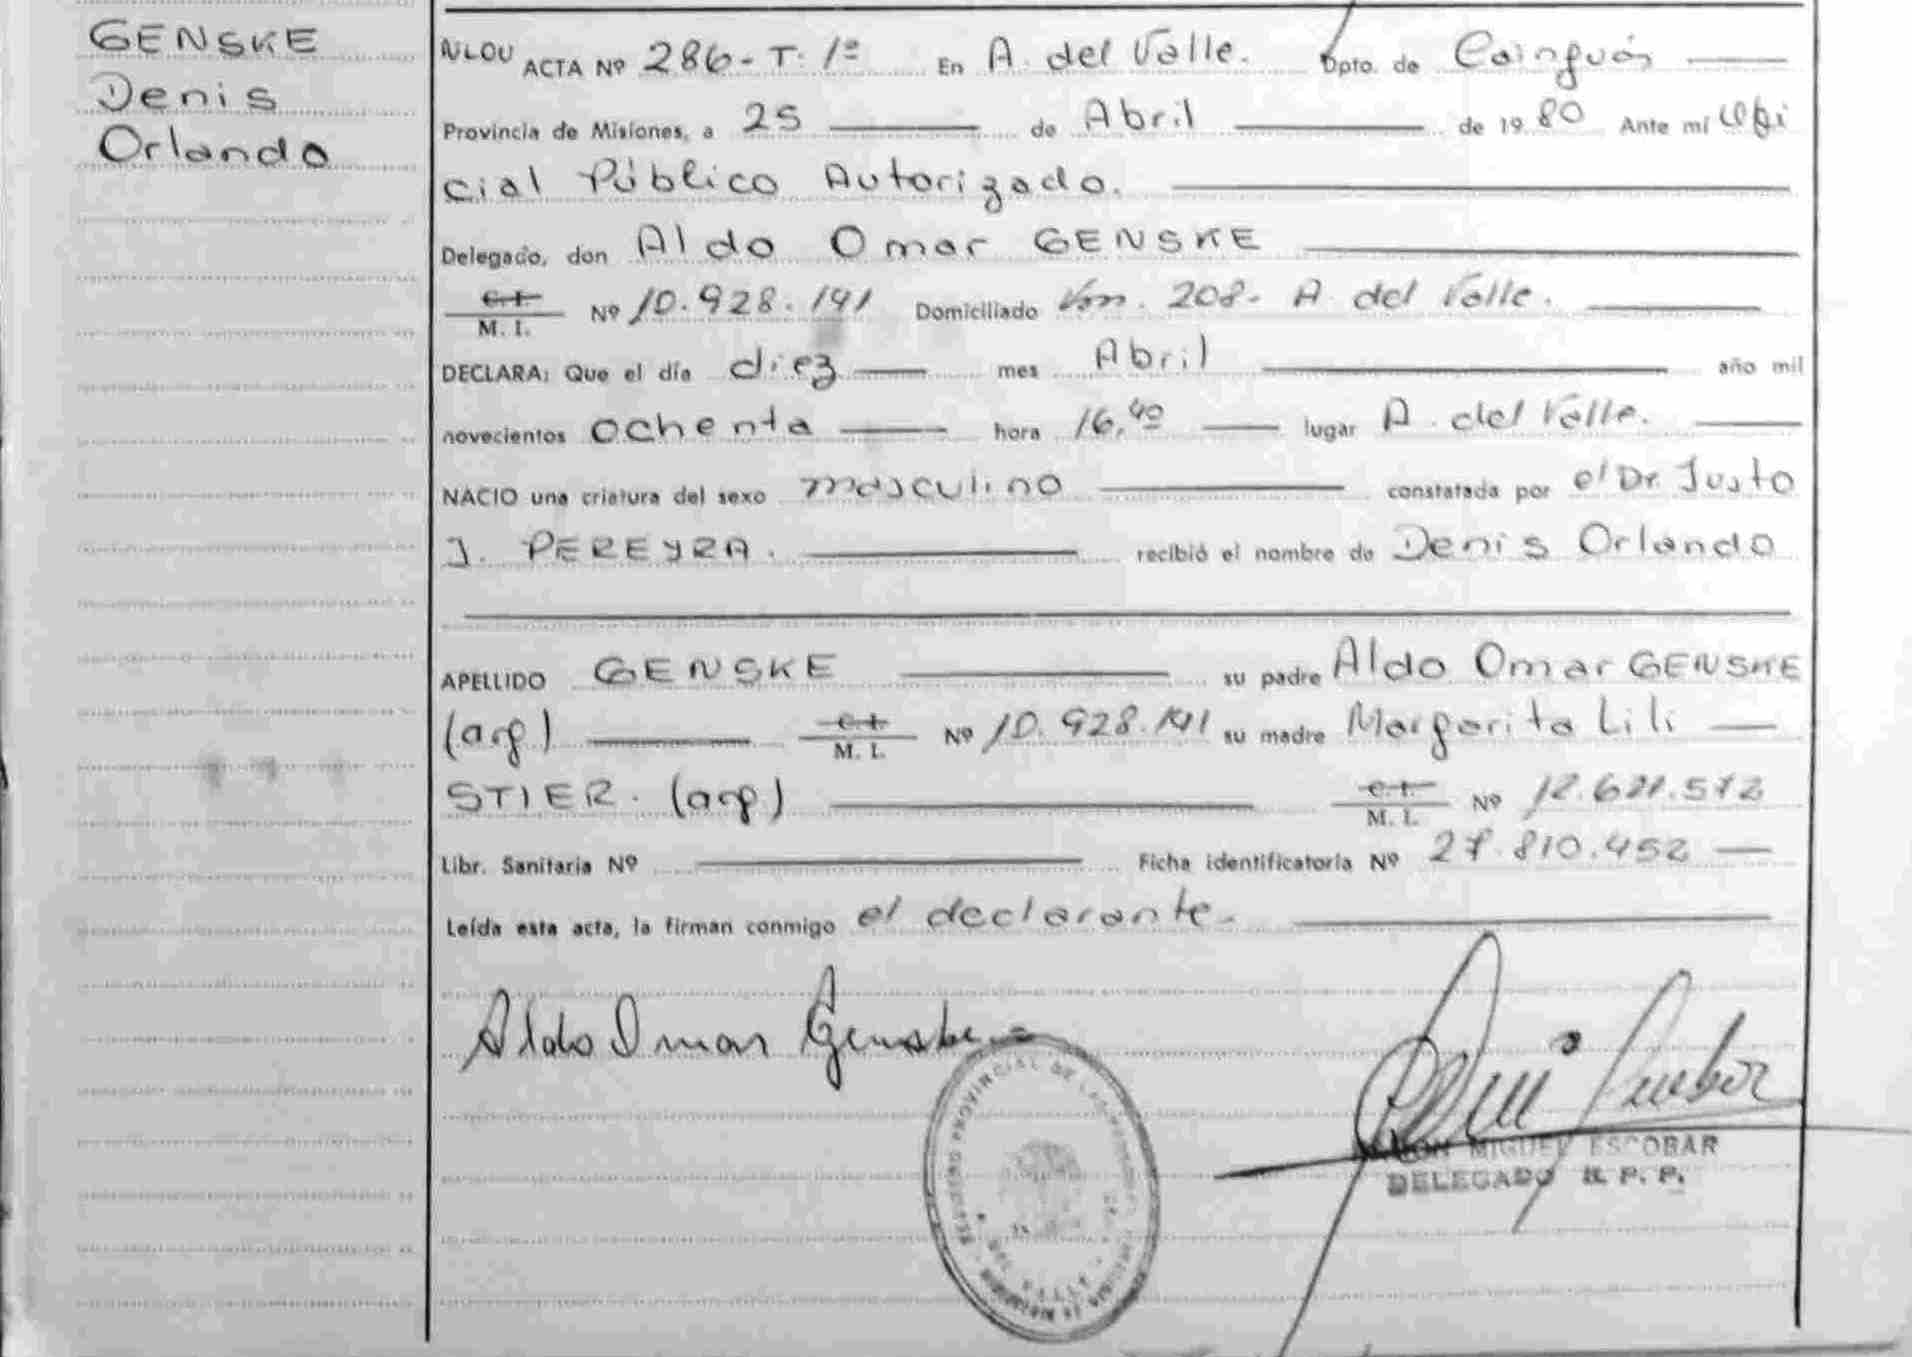 GENSKE
Denis
Orlando
ACTA Nº 286-T. 1º En A. del Valle. Dpto. de Cainguás
Provincia de Misiones, a 25 de Abril de 1980 Ante mí Ofi
cial Público Autorizado.
Delegado, don Aldo Omar GENSKE
C.I. M. I. Nº 10.928.141 Domiciliado Km. 208- A. del Valle.
DECLARA: Que el día diez mes Abril año mil
novecientos ochenta hora 16,40 lugar A. del Valle.
NACIO una criatura del sexo masculino constatada por el Dr Justo
J. PEREYRA. recibió el nombre de Denis Orlando
APELLIDO GENSKE su padre Aldo Omar GENSKE
(arg) C.I. M. I. Nº 10.928.141 su madre Margarita Lili
STIER. (arg) C.I. M. I. Nº
Libr. Sanitaria Nº Ficha identificatoria Nº 27.810.452
Leída esta acta, la firman conmigo el declarante.
Aldo Omar Genske
MIGUEL ESCOBAR
DELEGADO R. P. P.
REGISTRO PROVINCIAL DE LAS
DEL VALLE